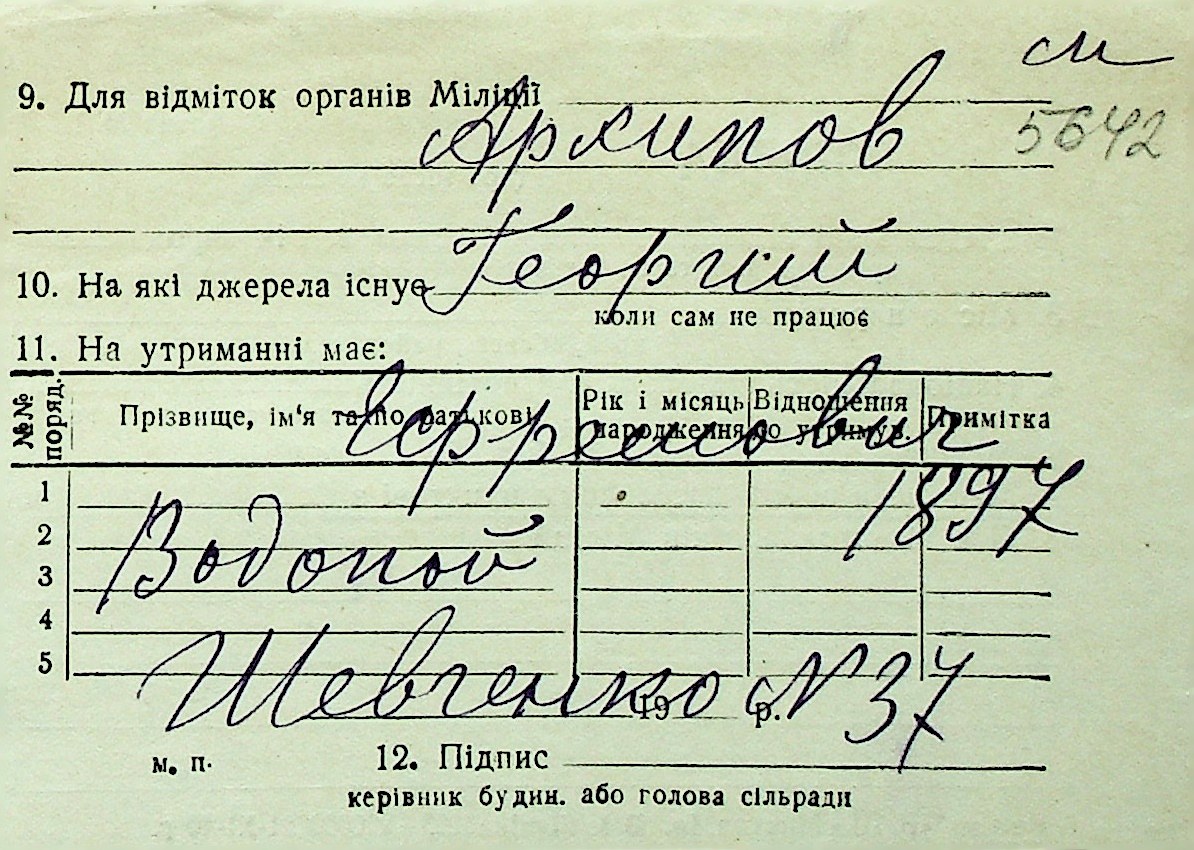 см
9. Для відміток органів Міліції
Архипов
5642
Георгий
10. На які джерела існує
коли сам не працює
11. На утриманні має:
№№ поряд. Прізвище, ім'я та по батькові Рік і місяць народження Відношення до утримує. Примітка
Ефремович
1
1897
2
Водопой
3
4
5
Шевченко № 37
19 р.
м. п. 12. Підпис
керівник будин. або голова сільради